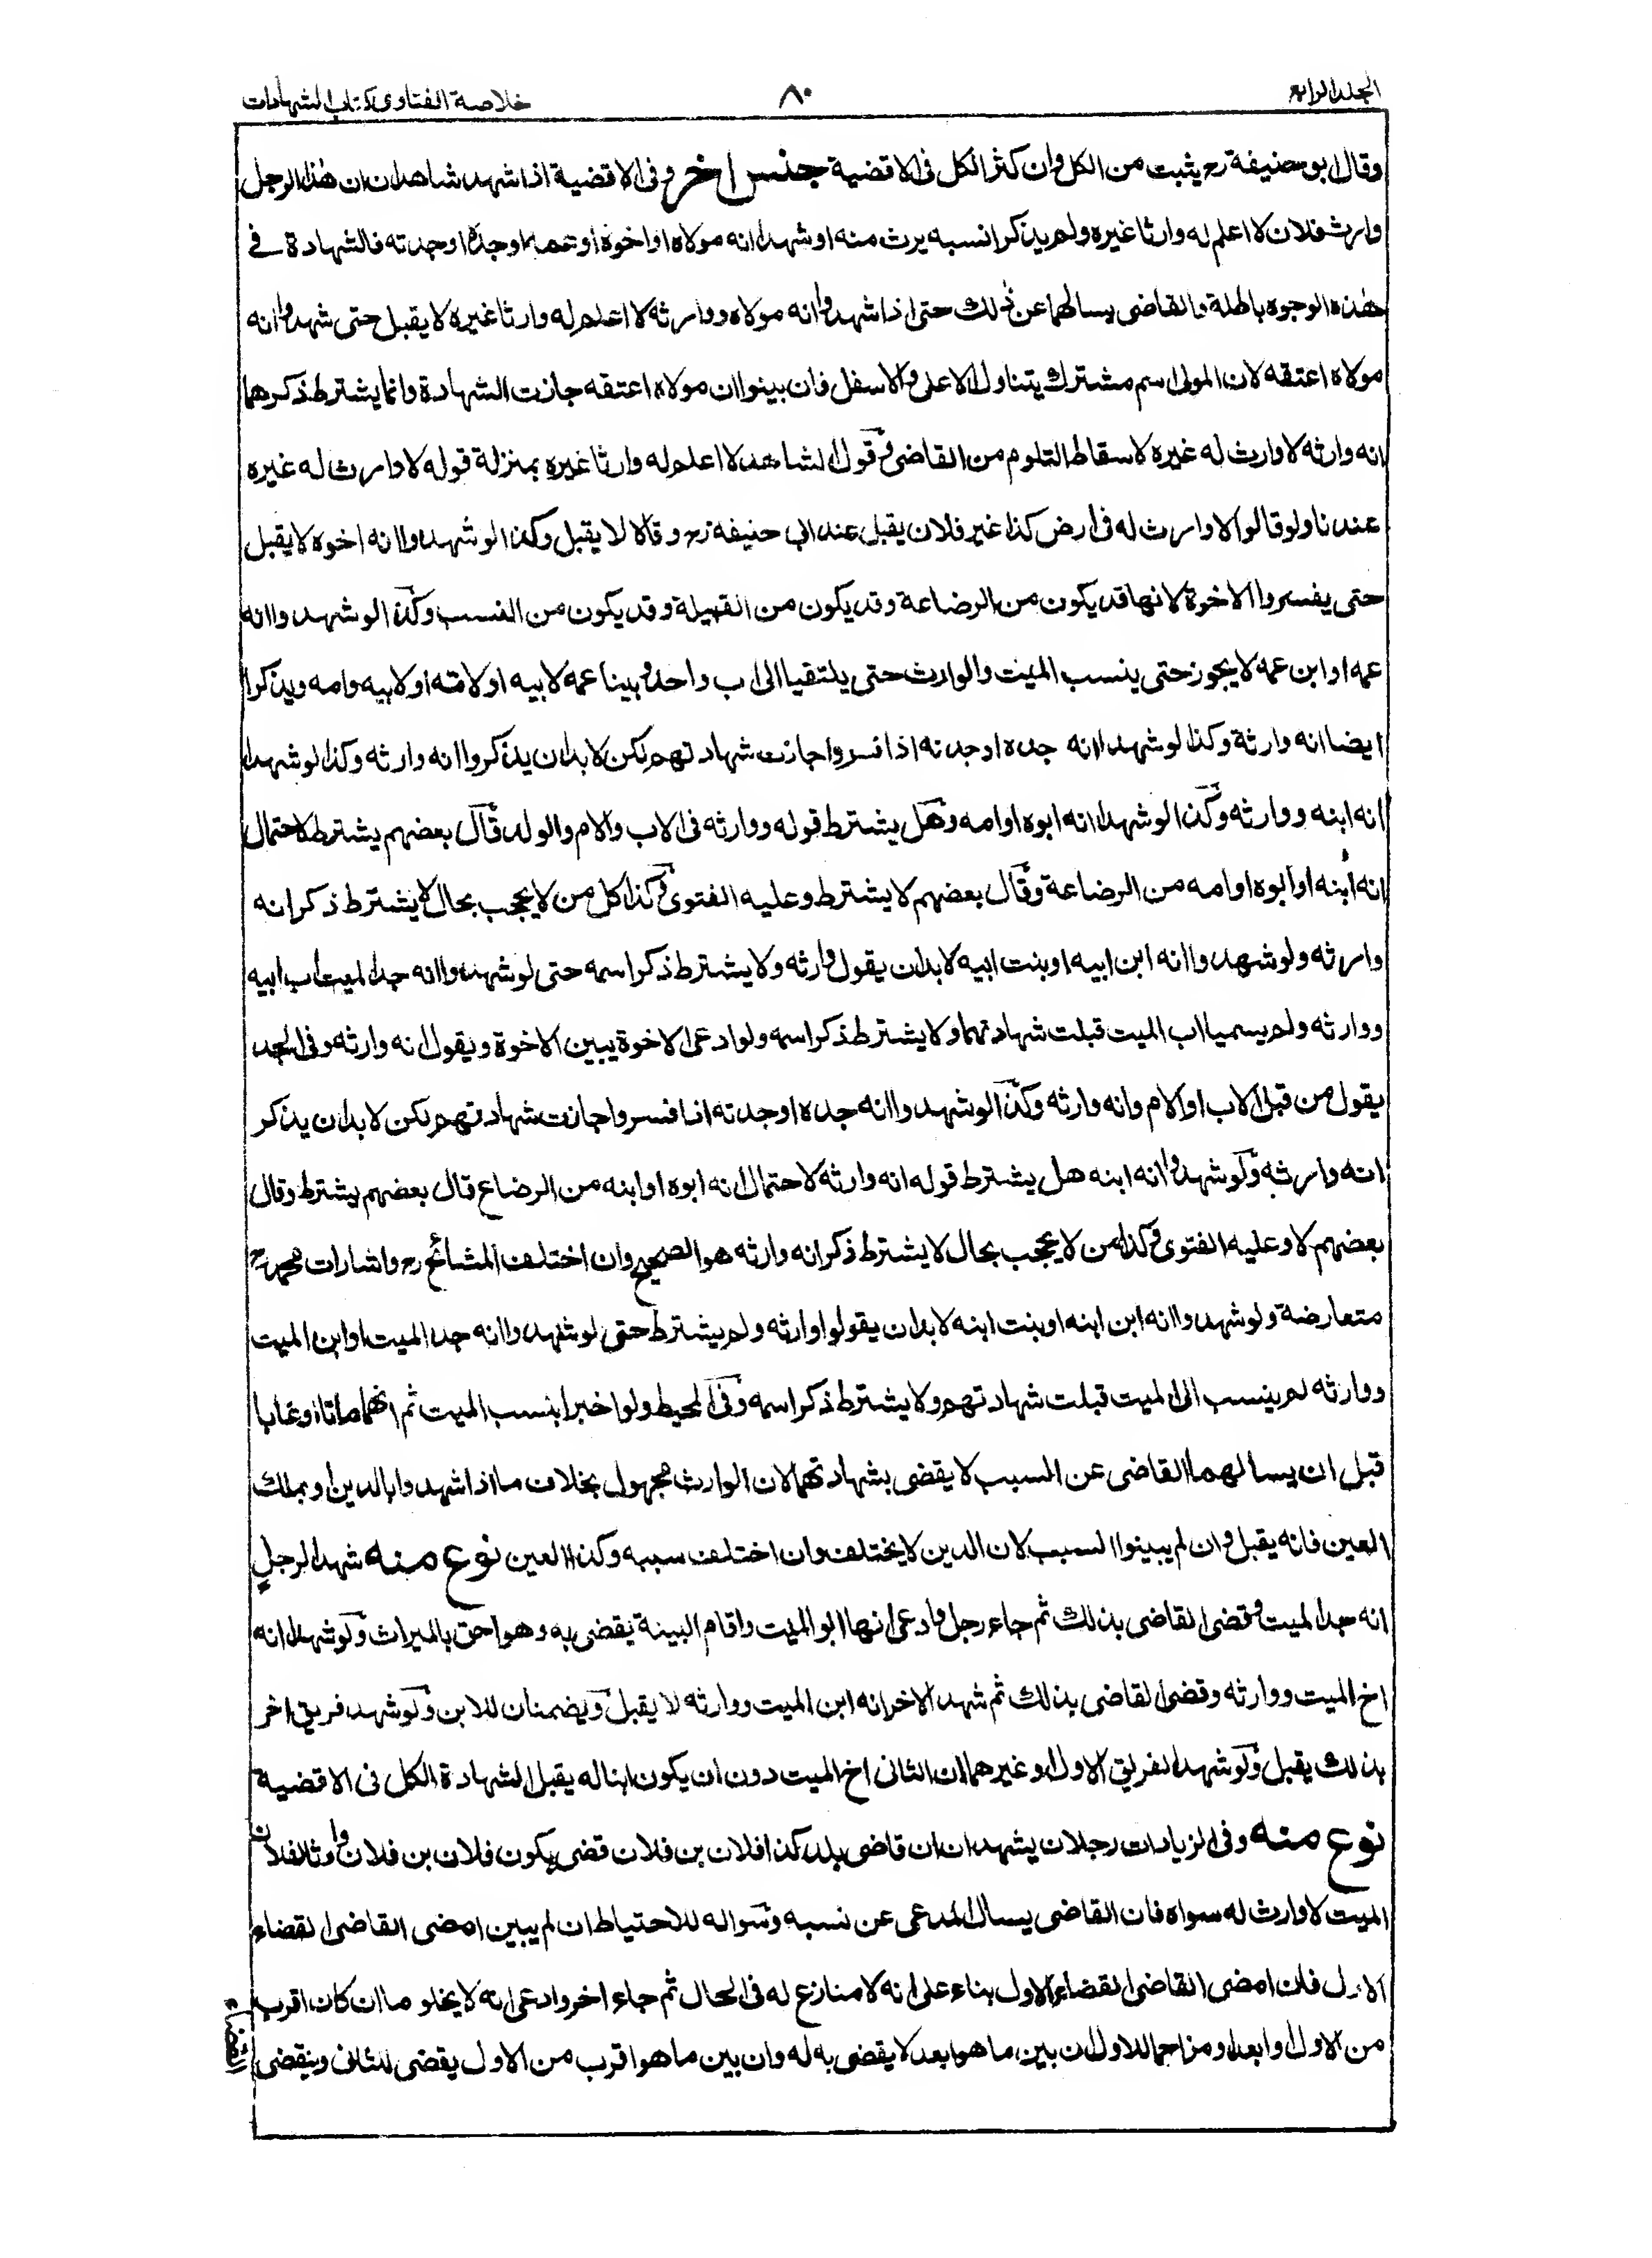 المجلد الرابع
٨٠
خلاصة الفتاوى كتاب الشهادات
وقال ابو حنيفة رح يثبت من الكل وان كثر الكل فى الاقضية جنس اخر وفى الاقضية اذا شهد شاهدان ان هذا الرجل
وارث فلان لا اعلم له وارثا غيره ولم يذكرا نسبه يرث منه او شهدا انه مولاه او اخوه او عمه او جده او جدته فالشهادة فى
هذه الوجوه باطلة والقاضى يسالهما عن ذلك حتى اذا شهدوا انه مولاه ووارثه لا اعلم له وارثا غيره لا يقبل حتى شهدوا انه
مولاه اعتقه لان المولى اسم مشترك يتناول الاعلى والاسفل فان بينوا ان مولاه اعتقه جازت الشهادة وانما يشترط ذكرهما
انه وارثه لا وارث له غيره لاسقاط التلوم من القاضى وقول الشاهد لا اعلم له وارثا غيره بمنزلة قوله لا وارث له غيره
عندنا ولو قالوا لا وارث له فى ارض كذا غير فلان يقبل عند ابى حنيفه رح وقالا لا يقبل وكذا لو شهدوا انه اخوه لا يقبل
حتى يفسروا الاخوة لانها قد يكون من الرضاعة وقد يكون من القبيلة وقد يكون من النسب وكذا لو شهدوا انه
عمه او ابن عمه لا يجوز حتى ينسب الميت والوارث حتى يلتقيا الى اب واحد وبينا عمه لابيه او لامه او لابيه وامه ويذكرا
ايضا انه وارثة وكذا لو شهدا انه جده او جدته اذا فسروا جازت شهادتهم لكن لا بد ان يذكروا انه وارثه وكذا لو شهدا
انه ابنه ووارثه وكذا لو شهدا انه ابوه او امه وهل يشترط قوله ووارثه فى الاب والام والولد قال بعضهم يشترط لاحتمال
انه ابنه او ابوه او امه من الرضاعة وقال بعضهم لا يشترط وعليه الفتوى وكذا كل من لا يحجب بحال لا يشترط ذكر انه
وارثه ولو شهدوا انه ابن ابيه او بنت ابيه لا بد ان يقول وارثه ولا يشترط ذكر اسمه حتى لو شهدوا انه جد الميت اب ابيه
ووارثه ولم يسميا اب الميت قبلت شهادتهما ولا يشترط ذكر اسمه ولو ادعى الاخوة يبين الاخوة ويقول انه وارثه وفى الجد
يقول من قبل الاب او الام وانه وارثه وكذا لو شهدوا انه جده او جدته اذا فسروا جازت شهادتهم لكن لا بد ان يذكر
انه وارثه ولو شهدوا انه ابنه هل يشترط قوله انه وارثه لاحتمال انه ابوه او ابنه من الرضاع قال بعضهم يشترط وقال
بعضهم لا وعليه الفتوى وكذا من لا يحجب بحال لا يشترط ذكر انه وارثه هو الصحيح وان اختلف المشائخ رح واشارات محمد رح
متعارضة ولو شهدوا انه ابن ابنه او بنت ابنه لا بد ان يقولوا وارثه ولم يشترط حتى لو شهدوا انه جد الميت او ابن الميت
ووارثه لم ينسب الى الميت قبلت شهادتهم ولا يشترط ذكر اسمه وفى المحيط ولو اخبرا بنسب الميت ثم انهما ماتا او غابا
قبل ان يسالهما القاضى عن السبب لا يقضى بشهادتهما لان الوارث مجهول بخلاف ما اذا شهدوا بالدين او بملك
العين فانه يقبل وان لم يبينوا السبب لان الدين لا يختلف وان اختلف سببه وكذا العين نوع منه شهدا لرجل
انه جد الميت وقضى القاضى بذلك ثم جاء رجل وادعى انها ابو الميت واقام البينة يقضى به وهو احق بالميراث ولو شهدا انه
اخ الميت ووارثه وقضى القاضى بذلك ثم شهدا لاخر انه ابن الميت ووارثه لا يقبل ويضمنان للابن ولو شهد فريق اخر
بذلك يقبل ولو شهد الفريق الاول او غيرهما ان الثانى اخ الميت دون ان يكون ابنا له يقبل الشهادة الكل فى الاقضية
نوع منه وفى الزيادات رجلان يشهدان ان قاضى بلد كذا فلان بن فلان قضى بكون فلان بن فلان وارثا لفلان
الميت لا وارث له سواه فان القاضى يسال المدعى عن نسبه وسواله للاحتياط ان لم يبين امضى القاضى القضاء
الاول فان امضى القاضى القضاء الاول بناء على انه لا منازع له فى الحال ثم جاء اخر وادعى انه لا يخلو ما ان كان اقرب
من الاول او ابعد او مزاحما للاول ان بين ما هو ابعد لا يقضى به له وان بين ما هو اقرب من الاول يقضى للثانى وينقضى